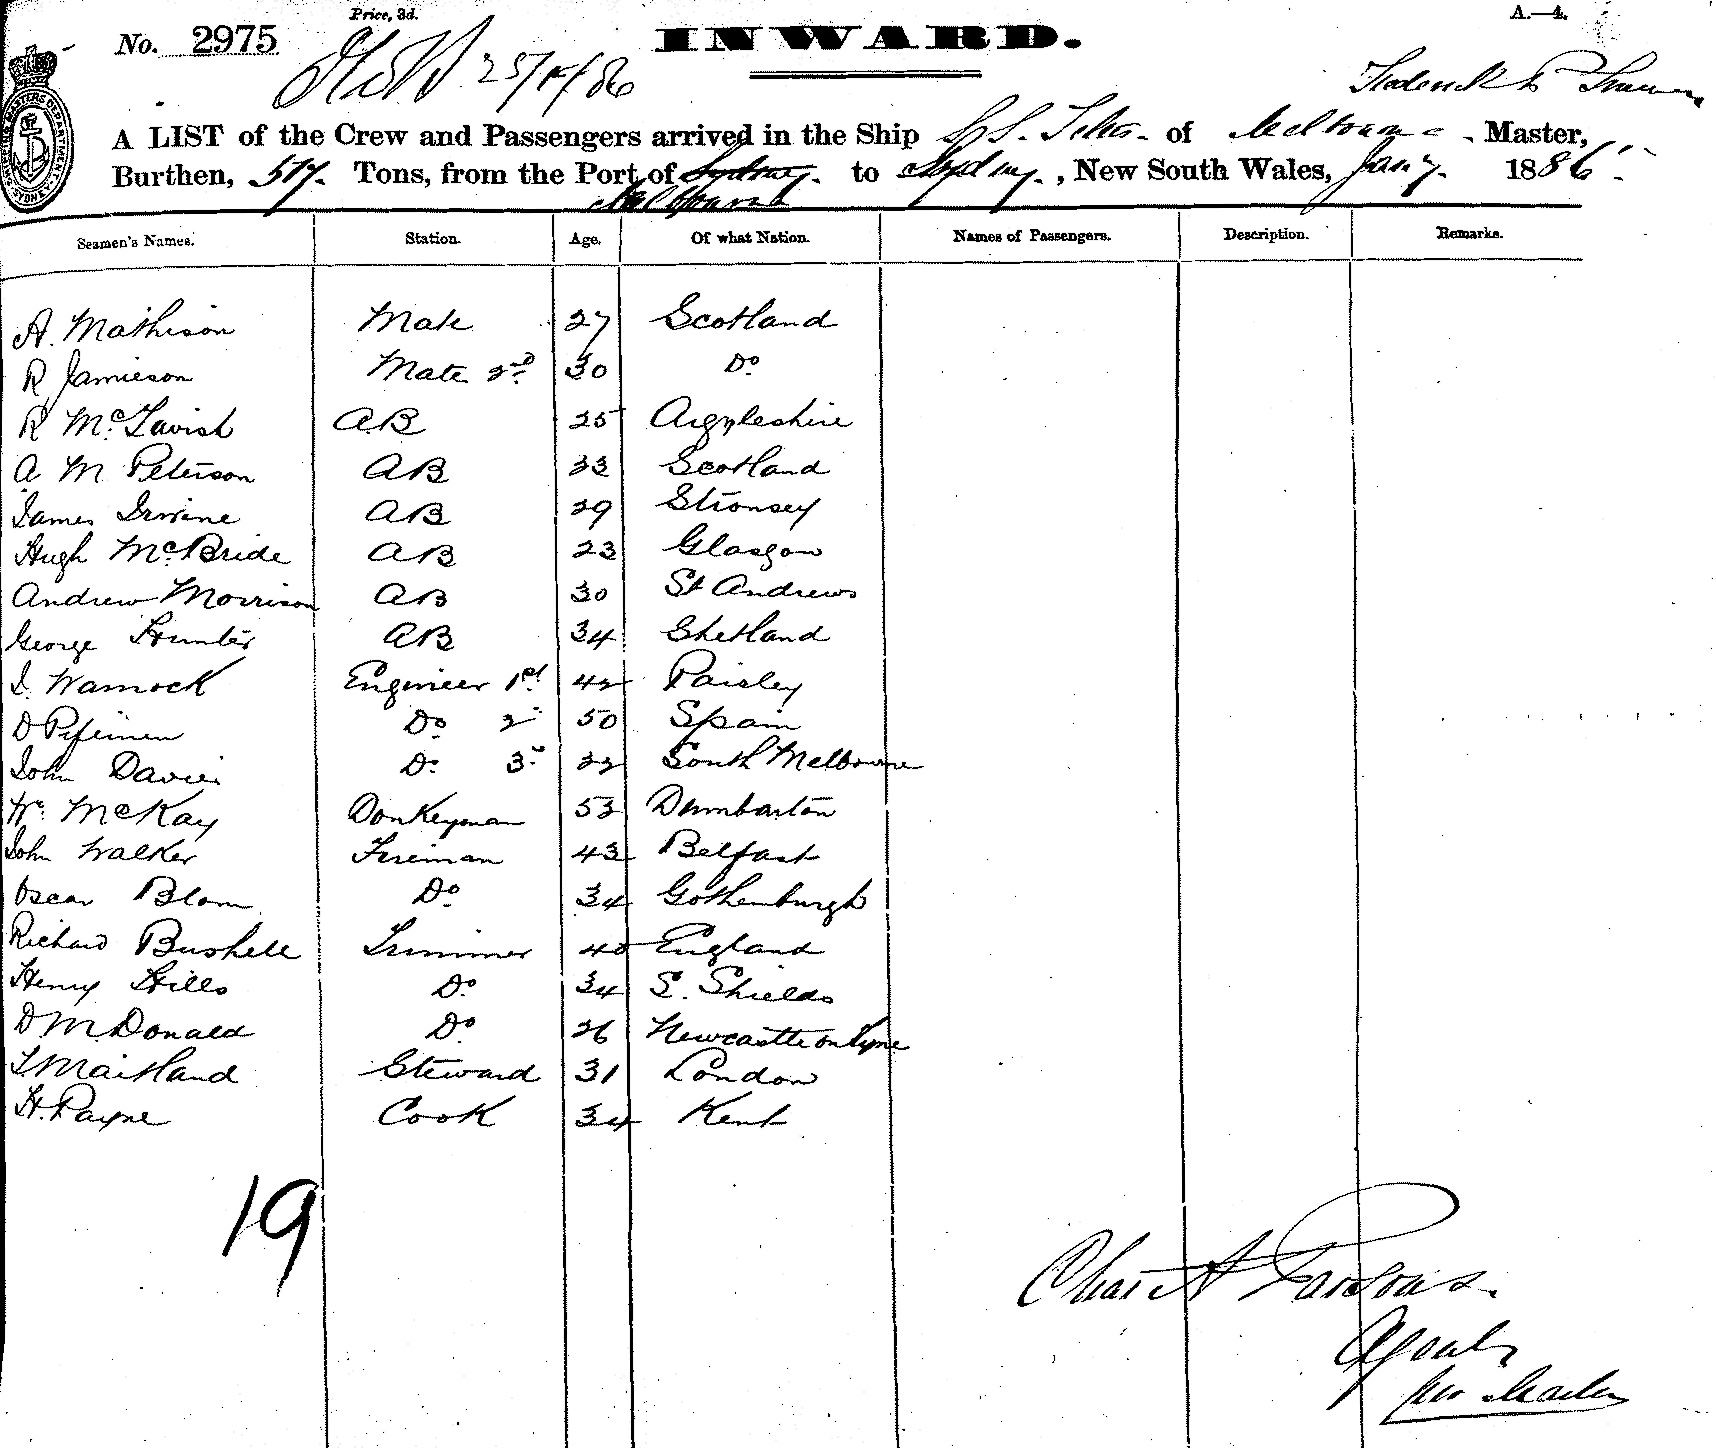 Price, 3d.
A.—4.
No. 2975
INWARD.
A LIST of the Crew and Passengers arrived in the Ship S.S. of Melbourne Master,
Burthen, 517 Tons, from the Port of Sydney to Sydney, New South Wales, Jany. 1886
Melbourne
Seamen's Names. Station. Age. Of what Nation. Names of Passengers. Description. Remarks.
A. Mathison Mate 27 Scotland
R Jamieson Mate 2nd 30 Do
R McTavish AB 25 Argyleshire
A M Peterson AB 33 Scotland
James Irvine AB 29 Stronsey
Hugh McBride AB 23 Glasgow
Andrew Morrison AB 30 St Andrews
George Hunter AB 34 Shetland
J. Warnock Engineer 1st 42 Paisley
D Do 2 50 Spain
John Davies Do 3 22 South Melbourne
Wm McKay Donkeyman 53 Dumbarton
John Walker Fireman 43 Belfast
Oscar Blom Do 34 Gothenburgh
Richard Bushell Trimmer 40 England
Henry Hills Do 34 S. Shields
D McDonald Do 26 Newcastle on Tyne
T Maitland Steward 31 London
H. Payne Cook 34 Kent
19
Chas A Parsons.
Agent
per Master